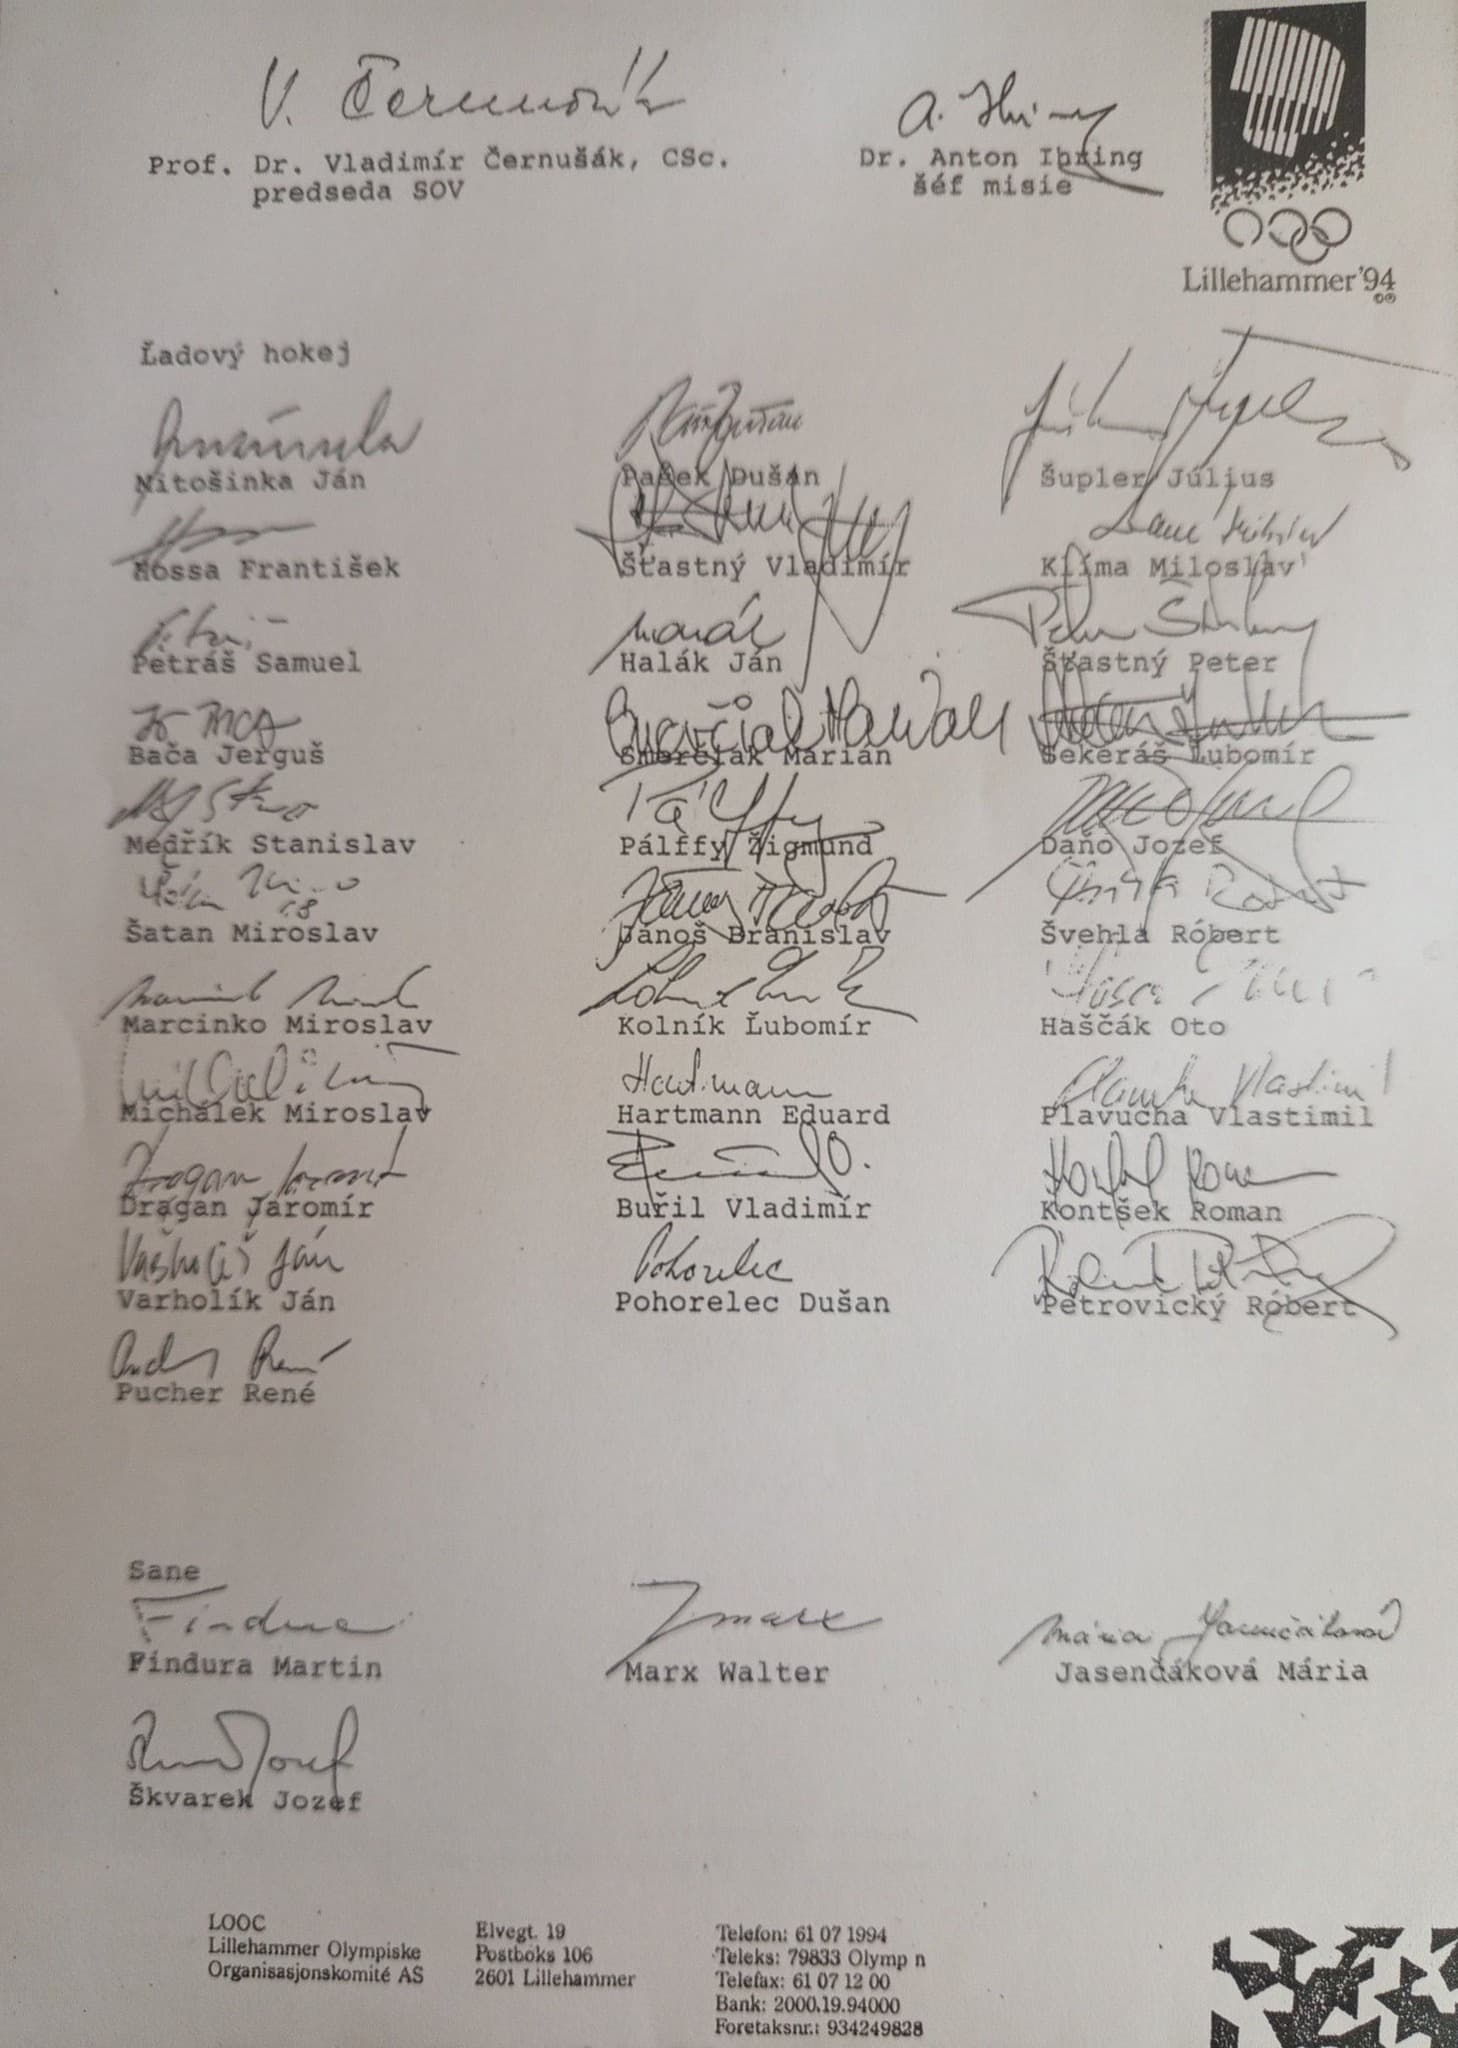 V. Černušák
A. Ihring
Prof. Dr. Vladimír Černušák, CSc.
predseda SOV
Dr. Anton Ihring
šéf misie
Lillehammer'94
Ľadový hokej
Nitošinka Ján
Pašek Dušan
Šupler Július
Hossa František
Šťastný Vladimír
Klíma Miloslav
Petráš Samuel
Halák Ján
Peter Šťastný
Šťastný Peter
Bača Jerguš
Smerčiak Marián
Sekeráš Ľubomír
Medřík Stanislav
Pálffy
Pálffy Žigmund
Daňo Jozef
Šatan Miroslav
18
Jánoš Branislav
Švehla Róbert
Marcinko Miroslav
Kolník Ľubomír
Haščák Oto
Michálek Miroslav
Hartmann
Hartmann Eduard
Plavucha Vlastimil
Plavucha Vlastimil
Dragan Jaromír
Dragan Jaromír
Buřil Vladimír
Kontšek Roman
Varholík Ján
Varholík Ján
Pohorelec
Pohorelec Dušan
Petrovický Róbert
Pucher René
Sane
Findura
Findura Martin
Marx
Marx Walter
Mária Jasenčáková
Jasenčáková Mária
Škvarek Jozef
LOOC
Lillehammer Olympiske
Organisasjonskomité AS
Elvegt. 19
Postboks 106
2601 Lillehammer
Telefon: 61 07 1994
Teleks: 79833 Olymp n
Telefax: 61 07 12 00
Bank: 2000.19.94000
Foretaksnr.: 934249828